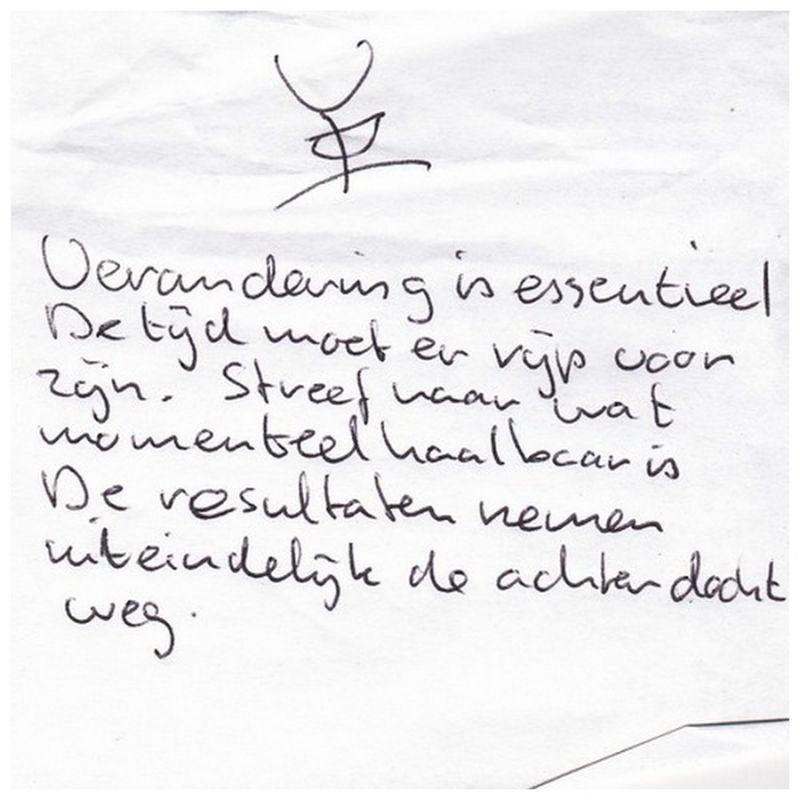 Verandering is essentieel
De tijd moet er rijp voor
zijn. Streef naar wat
momenteel haalbaar is
De resultaten nemen
uiteindelijk de achterdocht
weg.